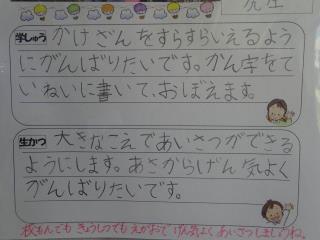 学しゅう かけざんをすらすらいえるよう
にがんばりたいです。かん字をてい
ねいに書いて、おぼえます。
生かつ 大きなこえであいさつができる
ようにします。あさからげん気よく
がんばりたいです。
校もんでもきょうしつでもえがおでげん気よくあいさつしましょうね。